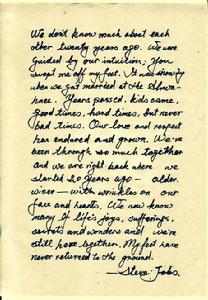 We didn't know much about each
other twenty years ago. We were
guided by our intuition; you
swept me off my feet. It was snowing
when we got married at the Ahwah-
nee. Years passed, kids came,
good times, hard times, but never
bad times. Our love and respect
has endured and grown. We've
been through so much together
and we are right back where we
started 20 years ago - older
wiser - with wrinkles on our
face and hearts. We now know
many of life's joys, sufferings,
secrets and wonders and we're
still here together. My feet have
never returned to the ground.
- Steve Jobs.